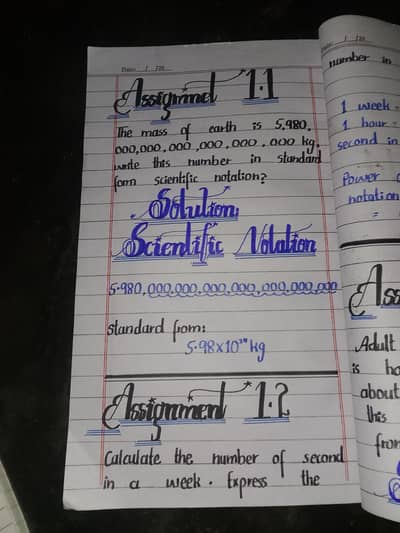 Date: / /20
Assignmet 1.1
The mass of earth is 5.980.
000,000,000,000,000,000 kg.
write this number in standard
form scientific notation?
Solution:
Scientific Notation
standard from:
Assignment 1.2
Calculate the number of second
in a week. Express the
number in
1 week
1 hour
second in
Power
notation
=
Ass
Adult
is
about
this
from